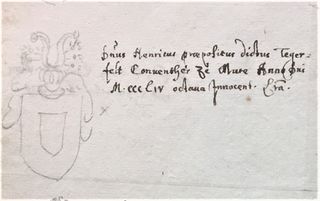 Dnus Henricus præpositus dictus Teger-
felt Conventher ze Mure Anno Dni
M. CCC LIV octava Innocent. Era.